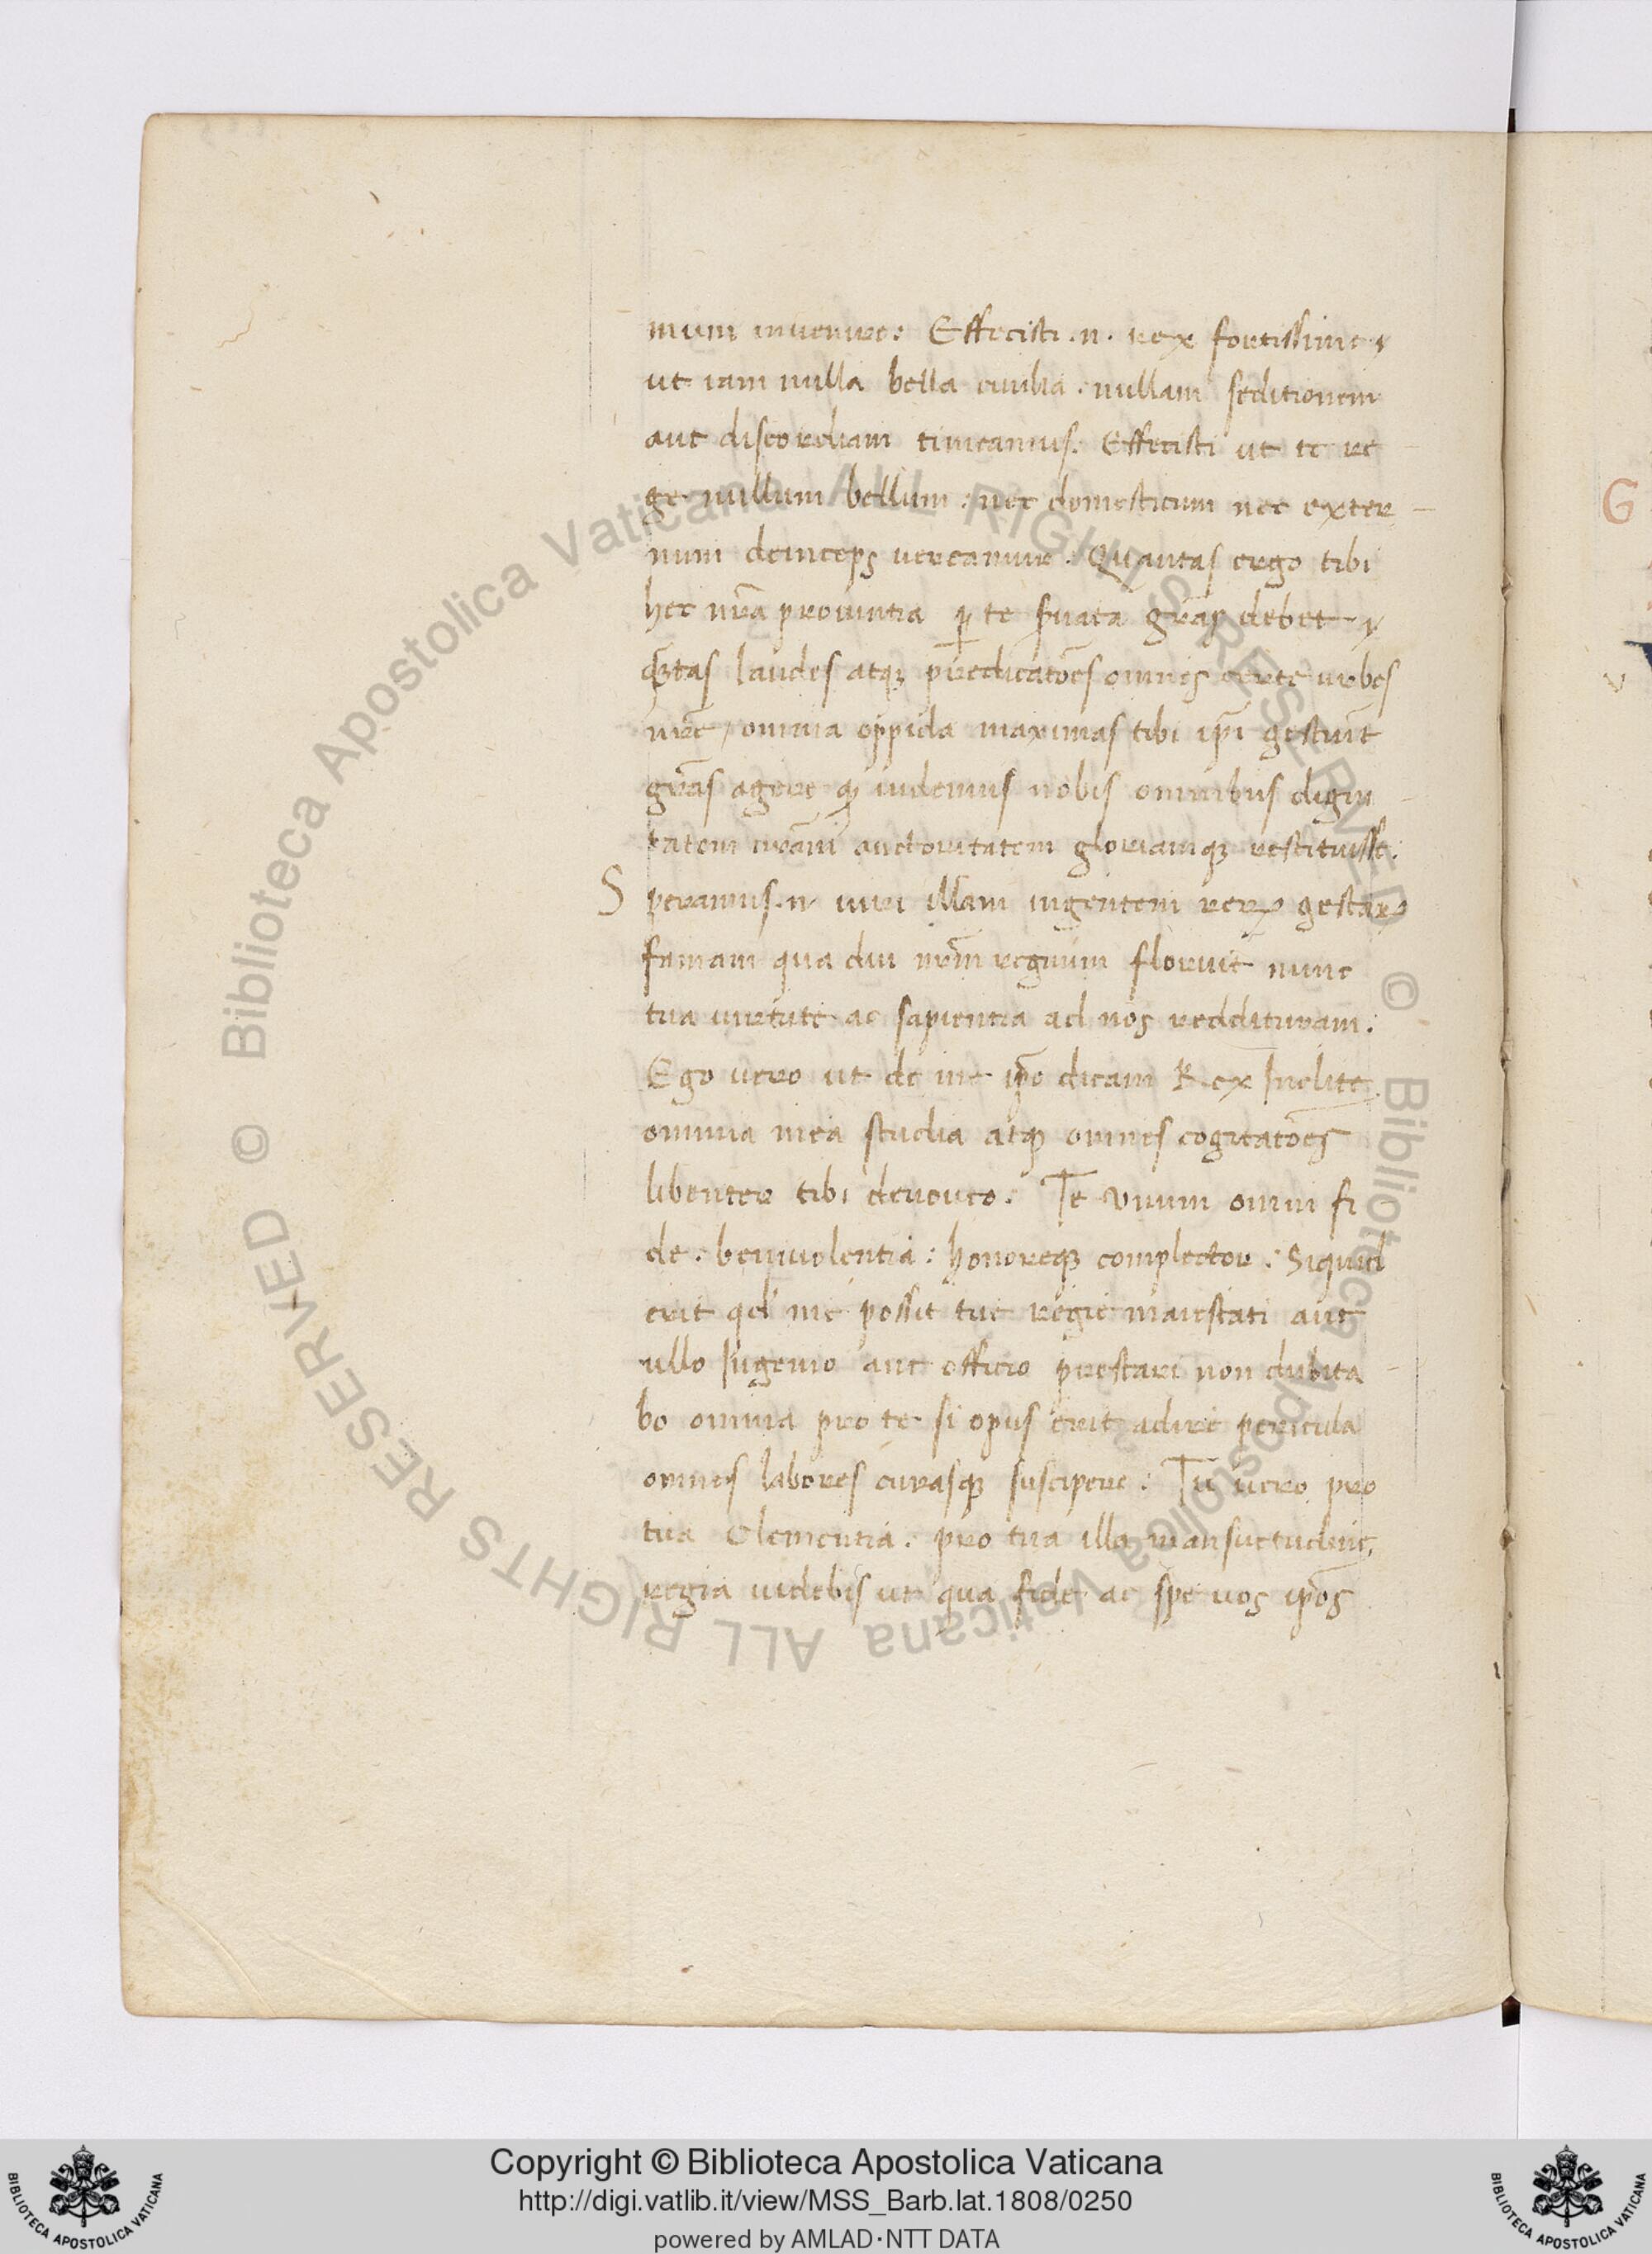 mum inuenire: Effecisti .n. rex fortissime,
ut iam nulla bella ciuilia . nullam seditionem
aut discordiam timeamus. Effecisti ut te re
ge nullum bellum . nec domesticum nec exter-
num deinceps uereamur. Quantas ergo tibi
hec nr̃a prouintia ꝑ te ẜuata gr̃as debet,
q̃tas laudes atqꝫ predicatões omnes certe urbes
nr̃e, omnia oppida maximas tibi ip̃i gestiũt
gr̃as agere qꝫ uidemus nobis omnibus digni-
tatem nr̃am auctoritatem gloriamqꝫ restituisse.
Speramus .n. uiri illam ingentem rerꝝ gestarꝝ
famam qua diu nr̃m regnum floruit nunc
tua uirtute ac sapientia ad nos reddituram.
Ego uero ut de me ip̃o dicam Rex Inclite
omnia mea studia atqꝫ omnes cogitatões
libenter tibi deuoueo. Te Vnum omni fi
de . beniuolentia : honoreqꝫ complector : Siquid
erit qd̃ me possit tue regie maiestati aut
ullo Ingenio aut officio prestari non dubita-
bo omnia pro te si opus erit adire pericula
omnes labores curasqꝫ suscipere : Tu uero pro
tua Clementia . pro tua illa mansuetudine
regia uidebis ut qua fide ac spe uos ip̃os
G
© Biblioteca Apostolica Vaticana ALL RIGHTS RESERVED © Biblioteca Apostolica Vaticana ALL RIGHTS RESERVED
Copyright © Biblioteca Apostolica Vaticana
http://digi.vatlib.it/view/MSS_Barb.lat.1808/0250
powered by AMLAD·NTT DATA
BIBLIOTECA APOSTOLICA VATICANA
BIBLIOTECA APOSTOLICA VATICANA